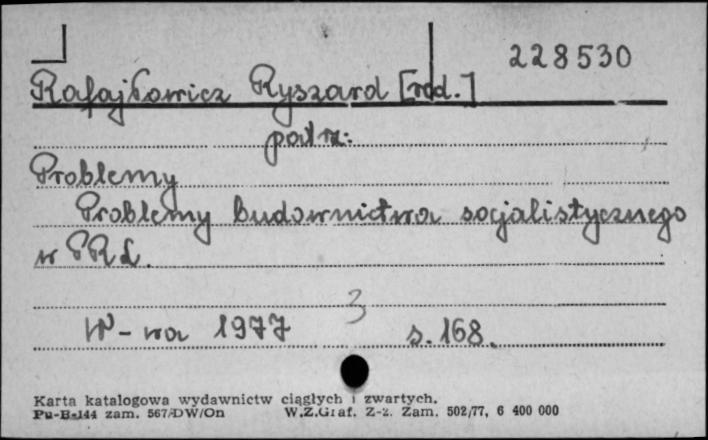 228530
Rafajłowicz Ryszard [red.]
patrz:
Problemy
Problemy budownictwa socjalistycznego
w PRL.
3
W-wa 1977 s. 168.
Karta katalogowa wydawnictw ciągłych i zwartych.
Pu-B-144 zam. 567/DW/On W.Z.Graf. Z-z. Zam. 502/77, 6 400 000